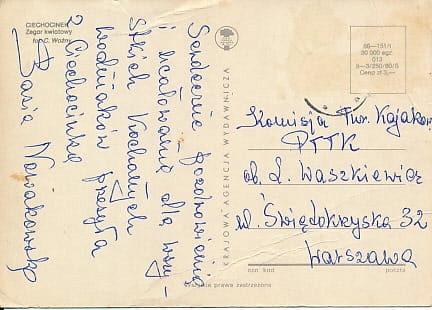 CIECHOCINEK
Zegar kwiatowy
fot. C. Woźny
Serdeczne pozdrowienia
i ucałowania dla wszy-
stkich Kochanych
wodniaków przesyła
z Ciechocinka
Basia Nowakowska
KRAJOWA AGENCJA WYDAWNICZA
66—151/I
30 000 egz
013
S—3/250/80/S
Cena zł 3,—
Komisja Tur. Kajakow
PTTK
ob. L. Waszkiewicz
ul. Świętokrzyska 32
Warszawa
kod
poczta
Wszelkie prawa zastrzeżone